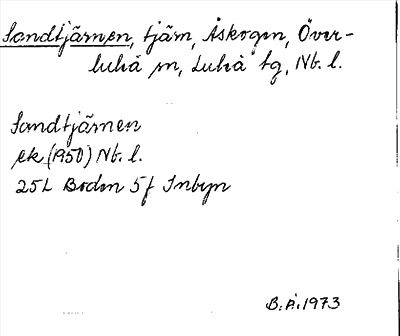 Sandtjärnen, tjärn, Åskogen, Över-
luleå sn, Luleå tg, Nb. l.
Sandtjärnen
ek (1950) Nb. l.
25L Boden 5f Inbyn
B.Å. 1973